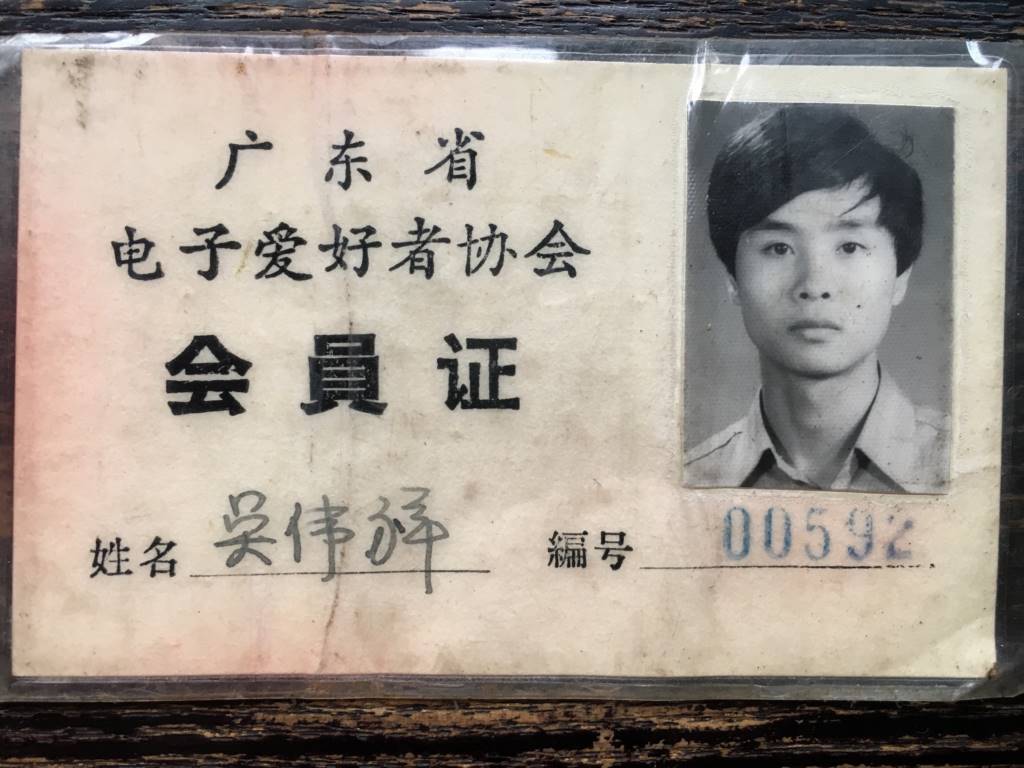 广东省
电子爱好者协会
会員证
姓名 吴伟群 编号 00592